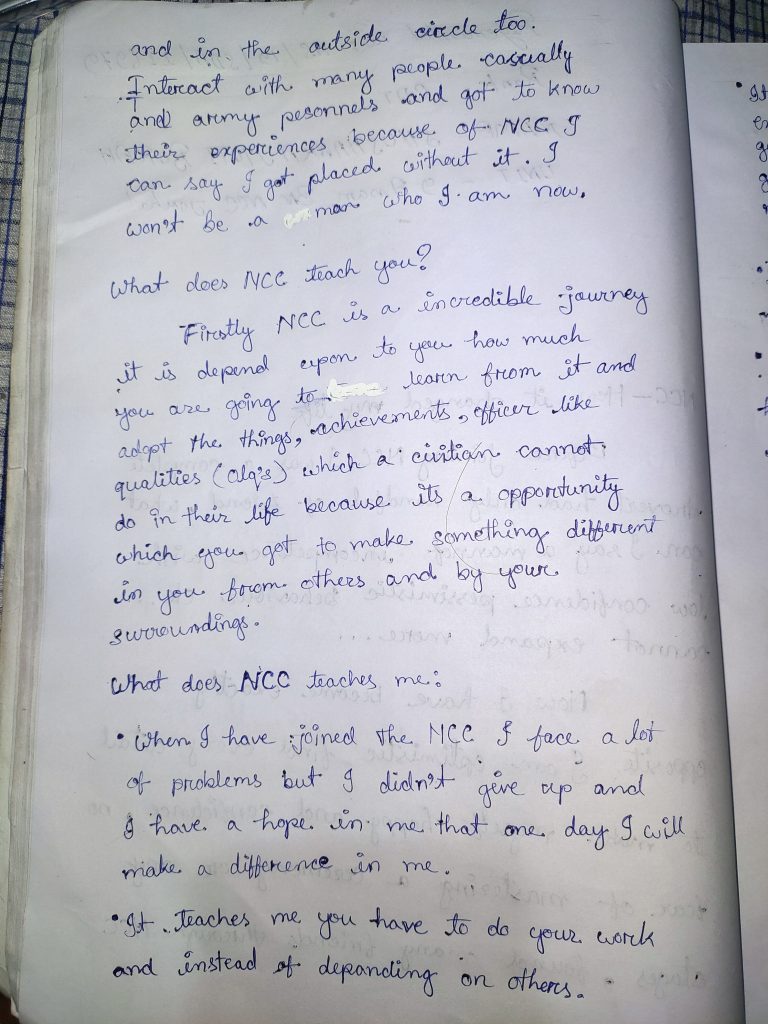 and in the outside circle too.
Interact with many people casually
and army pesonnels and got to know
their experiences because of NCC I
can say I got placed without it. I
won't be a man who I am now.
What does NCC teach you?
Firstly NCC is a incredible journey
it is depend upon to you how much
you are going to learn from it and
adopt the things, achievements, officer like
qualities (olq's) which a civilian cannot
do in their life because its a opportunity
which you got to make something different
in you from others and by your
surroundings.
What does NCC teaches me:
• When I have joined the NCC I face a lot
of problems but I didn't give up and
I have a hope in me that one day I will
make a difference in me.
• It teaches me you have to do your work
and instead of depanding on others.